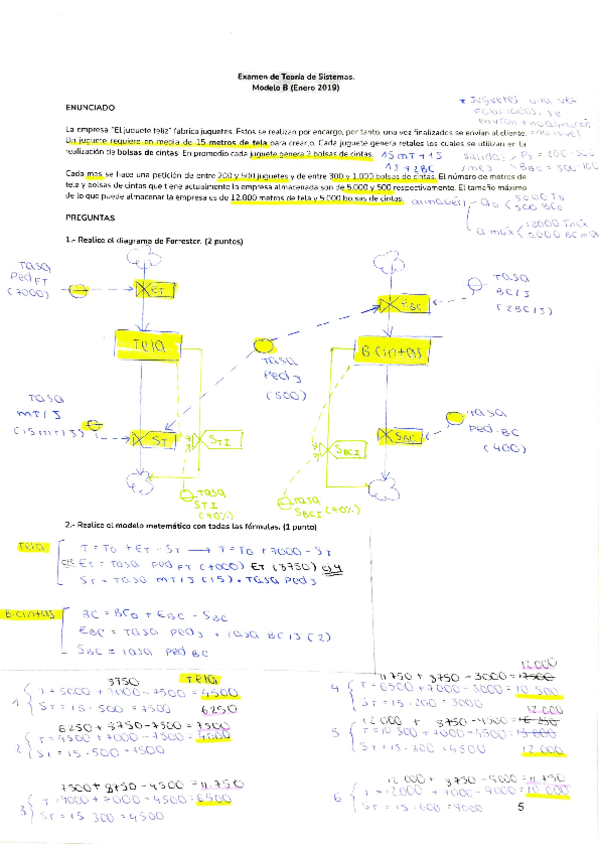 Examen de Teoría de Sistemas.
Modelo B (Enero 2019)
* Juguetes una vez
fabricados, se
ENUNCIADO
La empresa "El juguete feliz" fabrica juguetes. Estos se realizan por encargo, por tanto, una vez finalizados se envían al cliente.
Un juguete requiere en media de 15 metros de tela para crearlo. Cada juguete genera retales los cuales se utilizan en la
realización de bolsas de cintas. En promedio cada juguete genera 2 bolsas de cintas.
Cada mes se hace una petición de entre 200 y 500 juguetes y de entre 300 y 1.000 bolsas de cintas. El número de metros de
tela y bolsas de cintas que tiene actualmente la empresa almacenada son de 5.000 y 500 respectivamente. El tamaño máximo
de lo que puede almacenar la empresa es de 12.000 metros de tela y 5.000 bolsas de cintas.
PREGUNTAS
1.- Realice el diagrama de Forrester. (2 puntos)
Tasa
Ped FT
(7000)
ET
Tasa
BC/J
(2BC/J)
TBC
Tela
Tasa
Ped J
(500)
B Cintas
Tasa
MT/J
(15MT/J)
ST
STI
SBCI
SBC
Tasa
Ped. BC
(400)
Tasa
STI
(40%)
Tasa
SBCI (40%)
2.- Realice el modelo matemático con todas las fórmulas. (1 punto)
Tela
T = T0 + ET - ST → T = T0 + 7000 - ST
ET = Tasa Ped FT (7000) ET (3750)
ST = Tasa MT/J (15) · Tasa Ped J
B Cintas
BC = BC0 + EBC - SBC
EBC = Tasa Ped J · Tasa BC/J (2)
SBC = Tasa Ped BC
3750
Tela
1
T = 5000 + 7000 - 7500 = 4500
ST = 15 · 500 = 7500 6250
6250 + 3750 - 7500 = 7500
2
T = 4500 + 7000 - 7500 = 4000
ST = 15 · 500 = 7500
7500 + 8750 - 4500 = 11.750
3
T = 4000 + 7000 - 4500 = 6500
ST = 15 · 300 = 4500
12.000
11750 + 3750 - 3000 =
4
T = 6500 + 7000 - 3000 = 10.500
ST = 15 · 200 = 3000
12.000
5
T = 10500 + 7000 - 4500 =
ST = 15 · 300 = 4500 12.000
6
T = 12000 + 7000 - 9000 = 10.000
ST = 15 · 600 = 9000
5